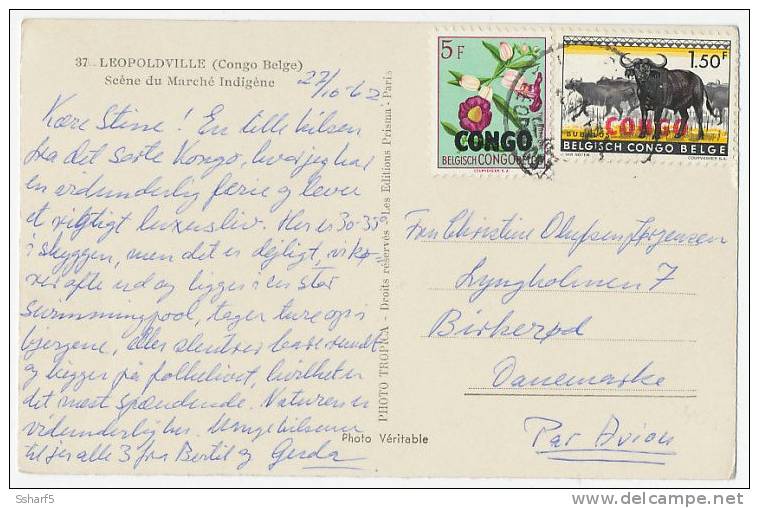 37 - LEOPOLDVILLE (Congo Belge)
Scène du Marché Indigène
27/10-62
Kære Stine! En lille hilsen
fra det sorte Kongo, hvor jeg har
en vidunderlig ferie og lever
et rigtigt luxusliv. Her er 30-35°
i skyggen, men det er dejligt, vi kø-
rer ofte ud og ligger i en stor
swimmingpool, tager ture op i
bjergene, eller slentrer bare rundt
og kigger på folkelivet, hvilket er
det mest spændende. Naturen er
vidunderlig her. Mange hilsener
til jer alle 3 fra Bertil og Gerda
PHOTO TROPICA - Droits réservés Les Editions Prisma - Paris
Photo Véritable
5 F
CONGO
BELGISCH CONGO BELGE
1.50F
CONGO
BELGISCH CONGO BELGE
Fru Christine Olufsen Jørgensen
Lyngholmen 7
Birkerød
Danemarke
Par Avion
Ssharf5
delcampe.net